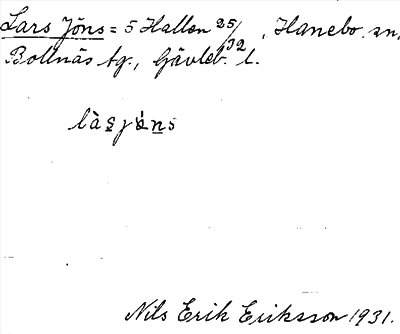 Lars Jöns = 5 Hallen 25/32, Hanebo sn,
Bollnäs tg., Gävleb. l.
làsjȯns
Nils Erik Eriksson 1931.